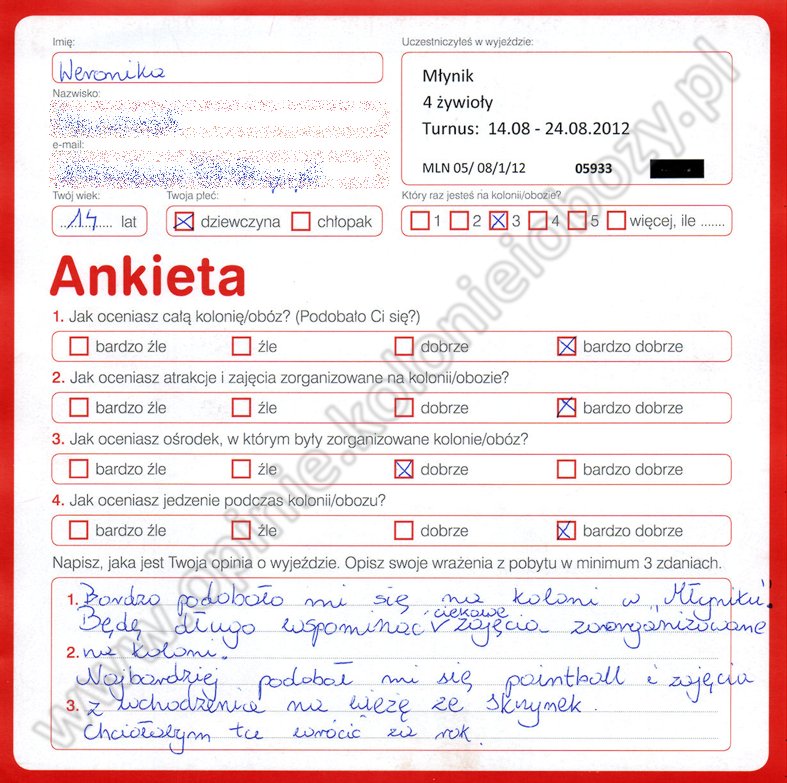 Imię:
Weronika
Nazwisko:
e-mail:
Twój wiek:
14 lat
Twoja płeć:
dziewczyna chłopak
Uczestniczyłeś w wyjeździe:
Młynik
4 żywioły
Turnus: 14.08 - 24.08.2012
MLN 05/ 08/1/12 05933
Który raz jesteś na kolonii/obozie?
1 2 3 4 5 więcej, ile .......
Ankieta
1. Jak oceniasz całą kolonię/obóz? (Podobało Ci się?)
bardzo źle źle dobrze bardzo dobrze
2. Jak oceniasz atrakcje i zajęcia zorganizowane na kolonii/obozie?
bardzo źle źle dobrze bardzo dobrze
3. Jak oceniasz ośrodek, w którym były zorganizowane kolonie/obóz?
bardzo źle źle dobrze bardzo dobrze
4. Jak oceniasz jedzenie podczas kolonii/obozu?
bardzo źle źle dobrze bardzo dobrze
Napisz, jaka jest Twoja opinia o wyjeździe. Opisz swoje wrażenia z pobytu w minimum 3 zdaniach.
1. Bardzo podobało mi się na koloni w „Młyniku”!
Będę długo wspominać ciekawe zajęcia zoorganizowane
2. na koloni.
Najbardziej podobał mi się paintball i zajęcia
3. z wchodzenia na wieżę ze skrzynek.
Chciałabym tu wrócić za rok.
www.opinie.kolonieiobozy.pl